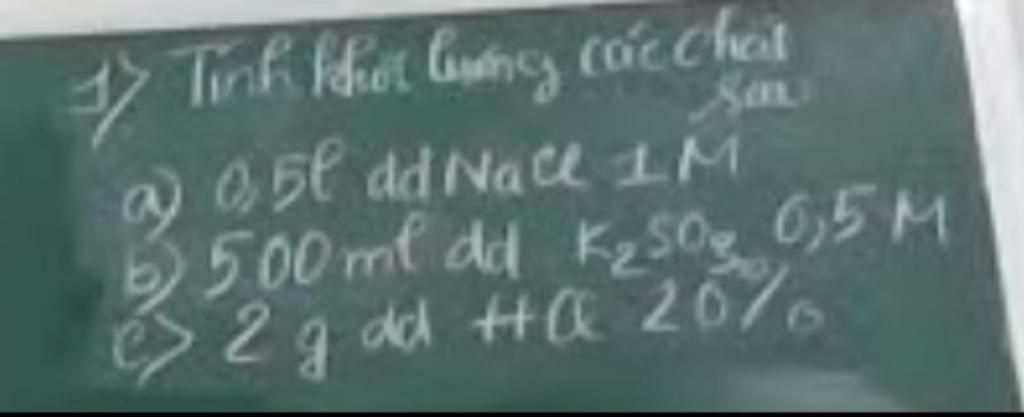 1) Tính khối lượng các chất
sau
a) 0,5l dd NaCl 1M
b) 500ml dd K₂SO₃ 0,5M
c) 2g dd HCl 20%